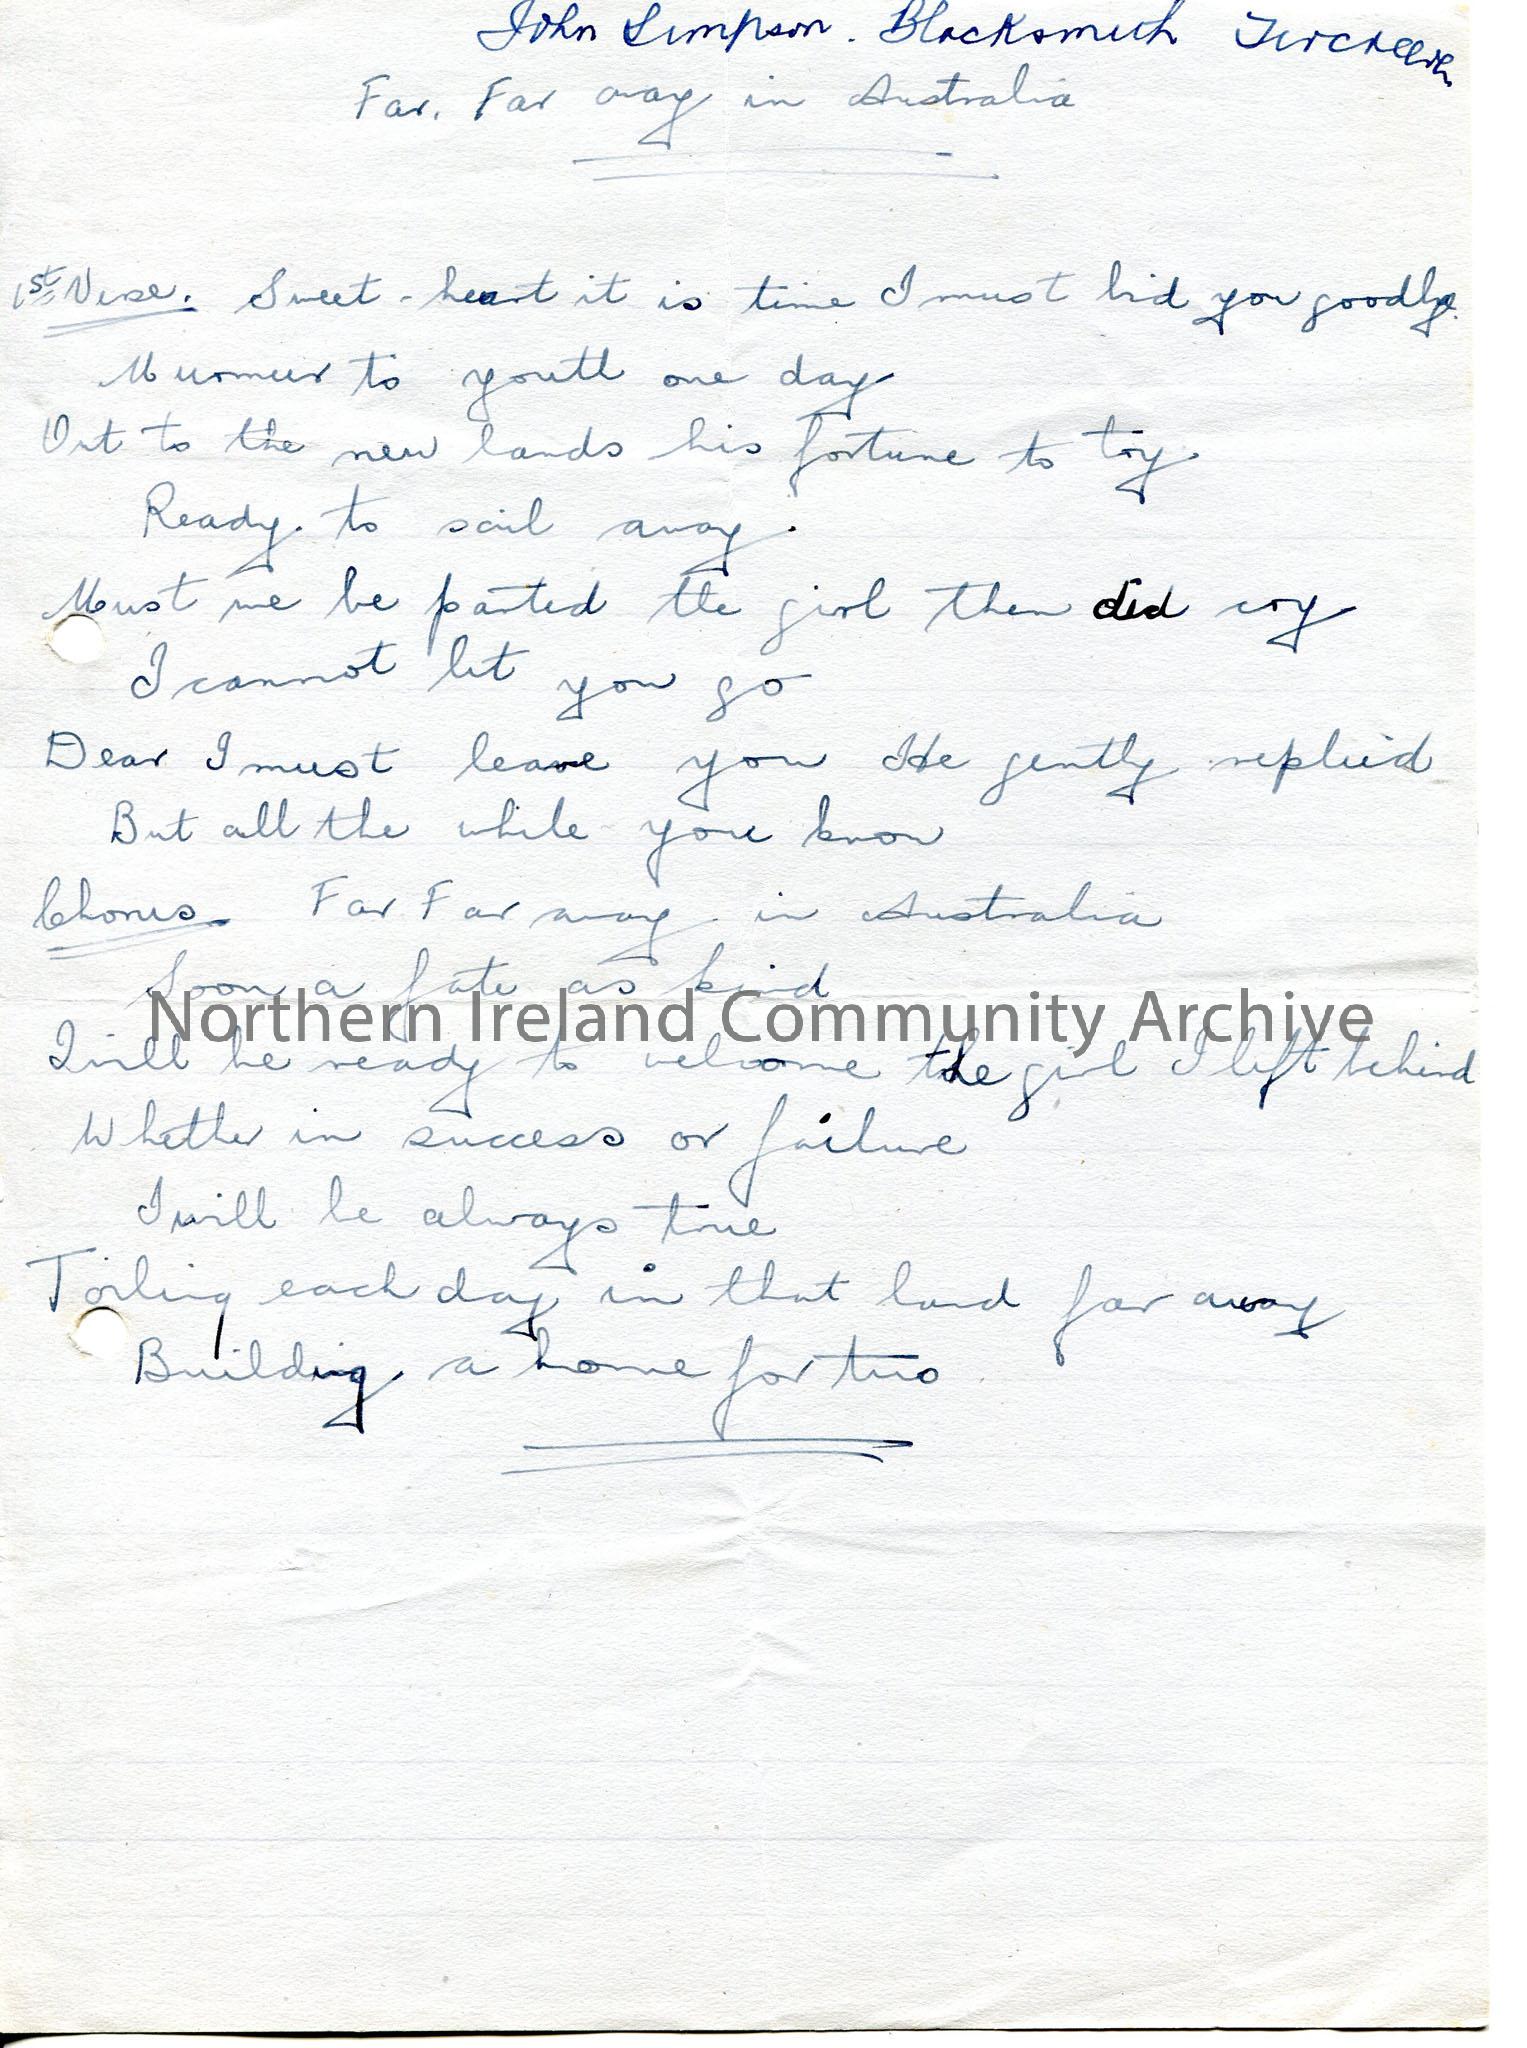 John Simpson. Blacksmith Tircreven
Far, Far away in Australia
1st Verse. Sweet-heart it is time I must bid you goodbye.
Murmur to youth one day
Out to the new lands his fortune to try.
Ready to sail away.
Must we be parted the girl then did cry
I cannot let you go
Dear I must leave you He gently replied
But all the while you know
Chorus Far Far away in Australia
Soon a fate as kind
Northern Ireland Community Archive
I will be ready to welcome the girl I left behind
Whether in success or failure
I will be always true
Toiling each day in that land far away
Building a home for two